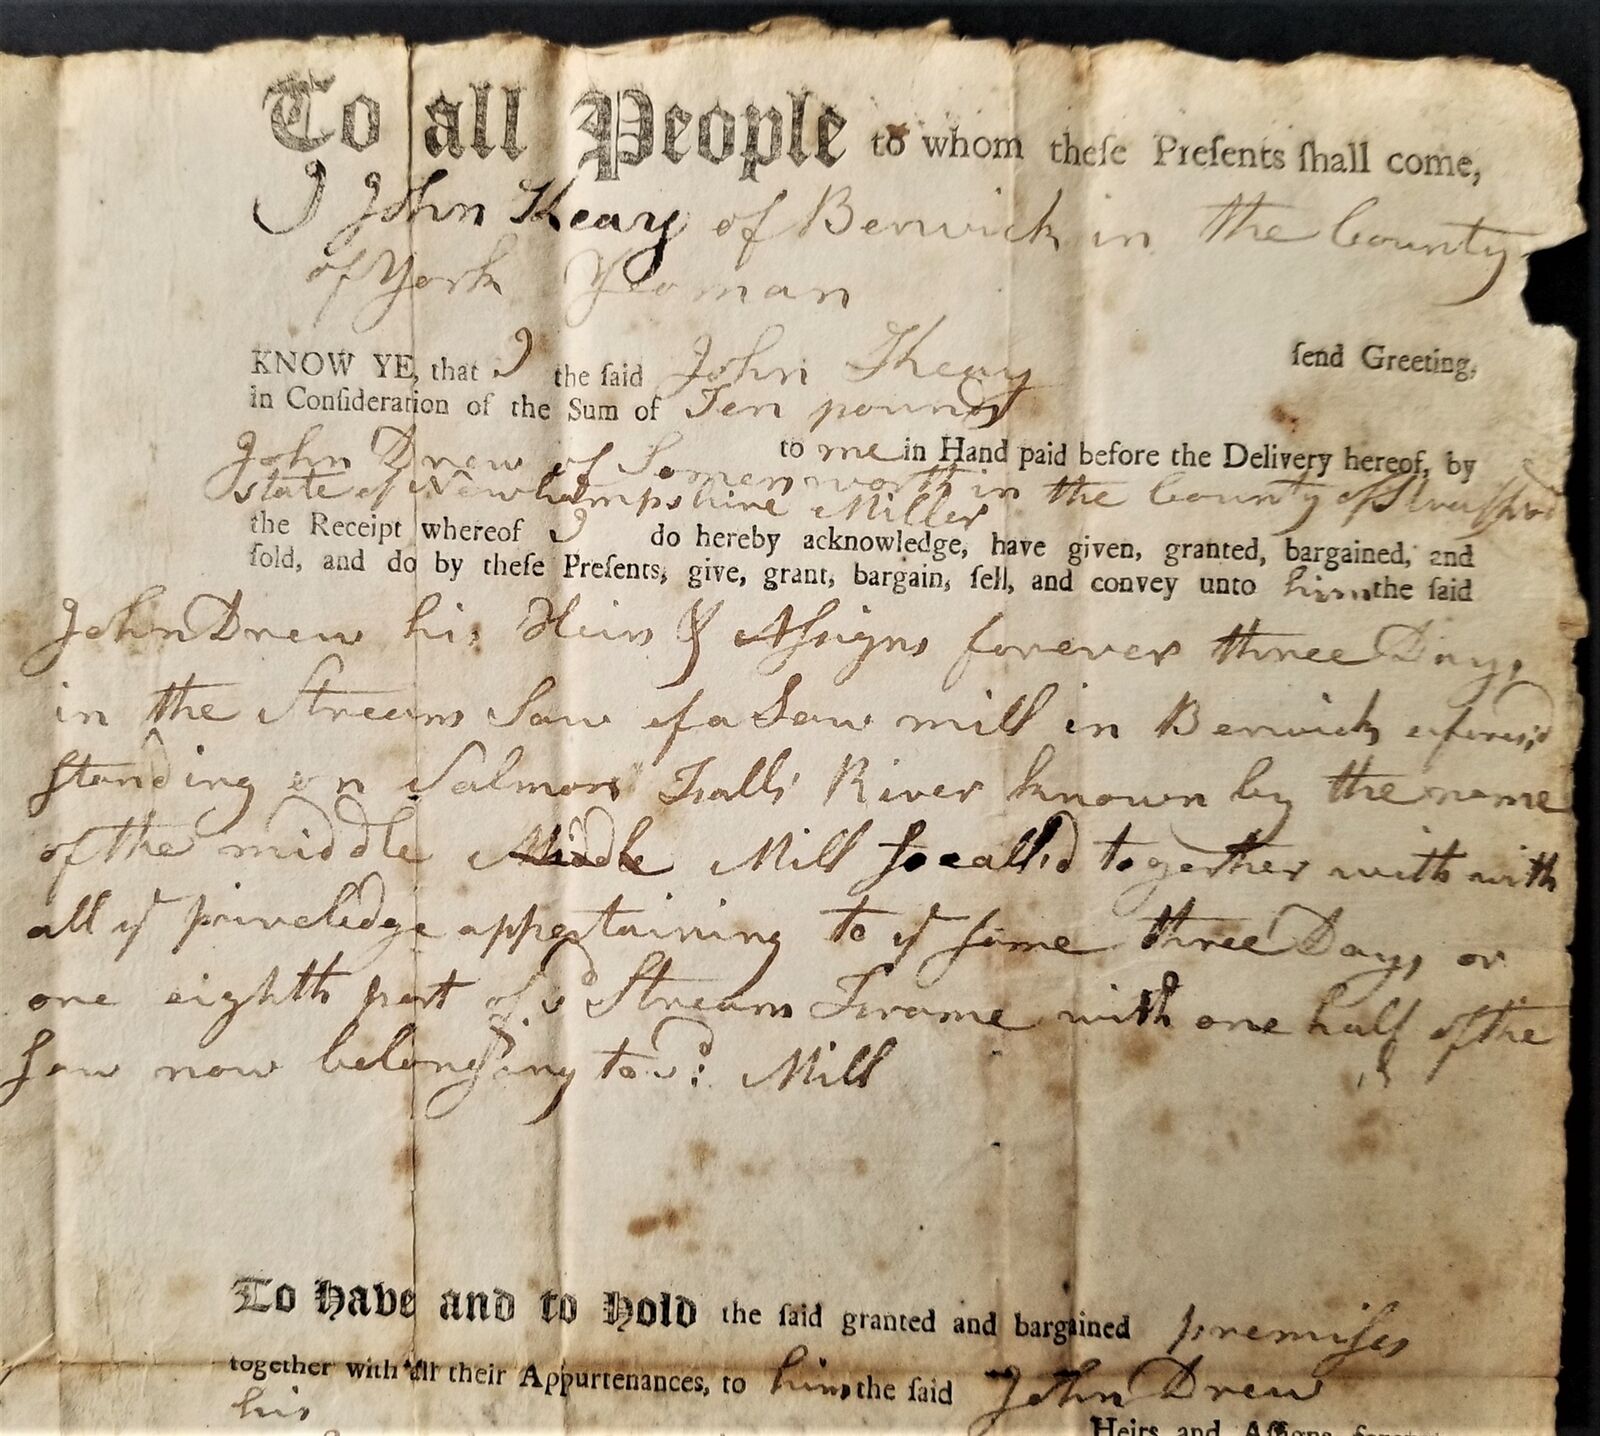 To all People to whom theſe Preſents ſhall come,
I John Keay of Berwick in the County
of York Yeoman
ſend Greeting,
KNOW YE, that I the ſaid John Keay
in Conſideration of the Sum of Ten pounds
to me in Hand paid before the Delivery hereof, by
John Drew of Somersworth in the County of Strafford
State of Newhampshire Miller
the Receipt whereof I do hereby acknowledge, have given, granted, bargained, and
ſold, and do by theſe Preſents, give, grant, bargain, ſell, and convey unto him the ſaid
John Drew his Heirs & Aſsigns forever three Days
in the Stream Saw of a Saw mill in Berwick aforesd
ſtanding on Salmon Falls River known by the name
of the middle Middle Mill ſo calld together with with
all ye priveledge appertaining to ye ſame three Days or
one eighth part of sd Stream Frame with one half of the
ſaw now belonging to sd: Mill
To Have and to Hold the ſaid granted and bargained premiſes
together with all their Appurtenances, to him the ſaid John Drew
his
Heirs and Aſſigns